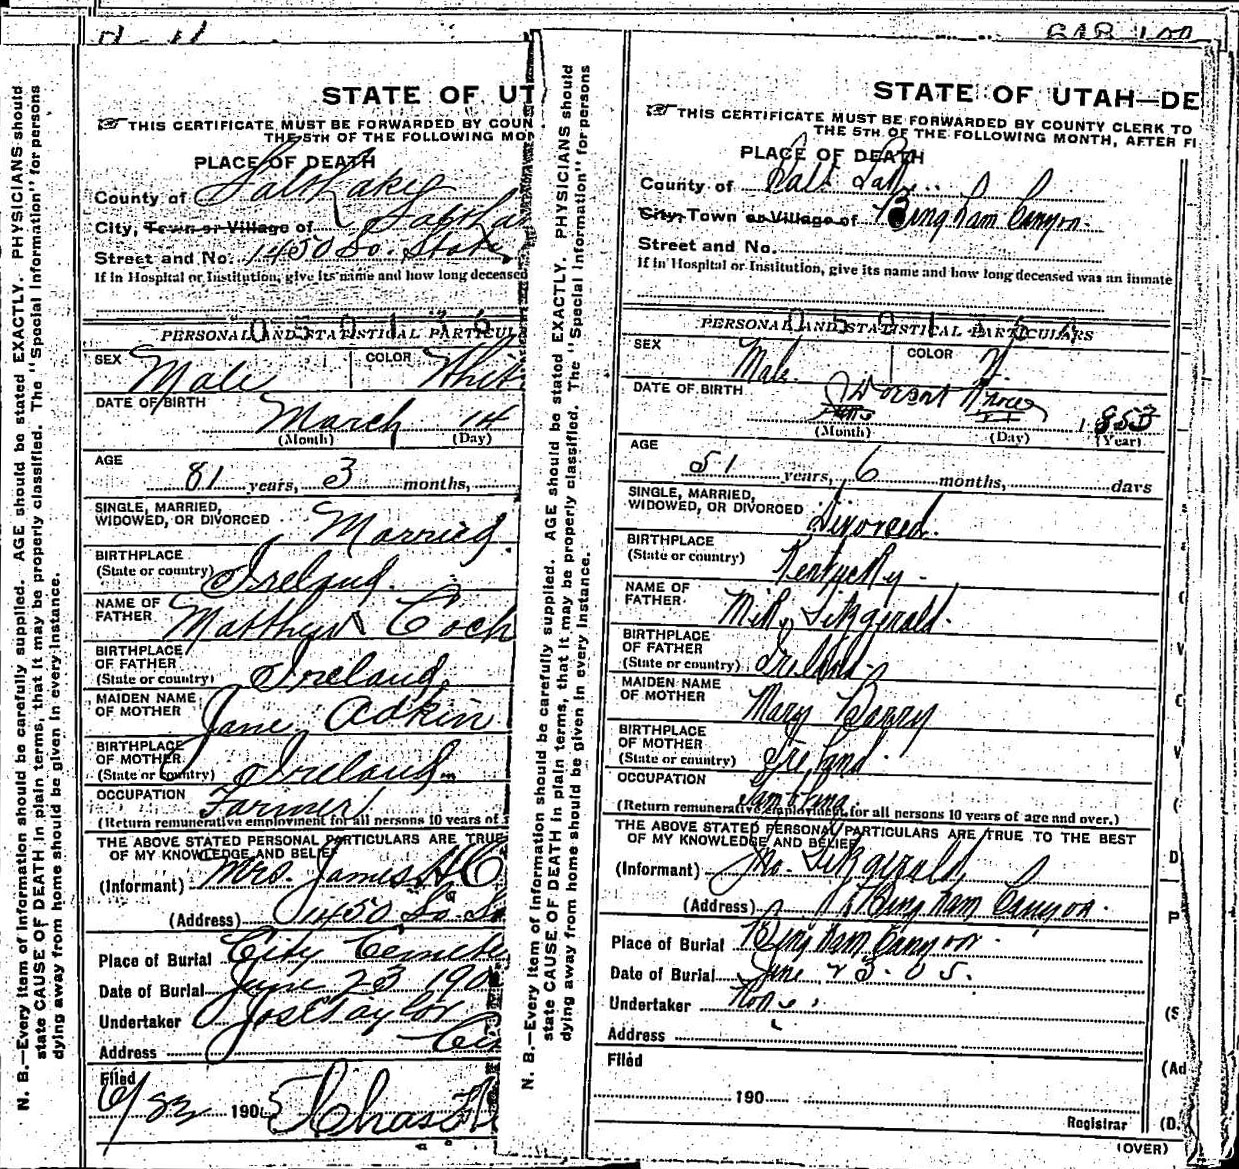 N. B.—Every item of information should be carefully supplied. AGE should be stated EXACTLY. PHYSICIANS should
state CAUSE OF DEATH in plain terms, that it may be properly classified. The "Special Information" for persons
dying away from home should be given in every instance.
STATE OF UT
THIS CERTIFICATE MUST BE FORWARDED BY COUN
THE 5TH OF THE FOLLOWING MO
PLACE OF DEATH
County of Salt Lake
City, Town or Village of
Street and No. 1450 So. State
If in Hospital or Institution, give its name and how long deceased
PERSONAL AND STATISTICAL PARTICUL
SEX Male COLOR Whit
DATE OF BIRTH March 14
(Month) (Day)
AGE 81 years, 3 months,
SINGLE, MARRIED,
WIDOWED, OR DIVORCED Married.
BIRTHPLACE
(State or country) Ireland
NAME OF
FATHER Matthew Coch
BIRTHPLACE
OF FATHER
(State or country) Ireland
MAIDEN NAME
OF MOTHER Jane Adkin
BIRTHPLACE
OF MOTHER
(State or country) Ireland
OCCUPATION Farmer
(Return remunerative employment for all persons 10 years of
THE ABOVE STATED PERSONAL PARTICULARS ARE TRUE
OF MY KNOWLEDGE AND BELIEF
(Informant) Mrs. James H C
(Address) 1450 So. S
Place of Burial City Cemete
Date of Burial June 23 190
Undertaker Jos E Taylor
Address
Filed
6/23 1905 Chas
N. B.—Every item of information should be carefully supplied. AGE should be stated EXACTLY. PHYSICIANS should
state CAUSE OF DEATH in plain terms, that it may be properly classified. The "Special Information" for persons
dying away from home should be given in every instance.
STATE OF UTAH—DE
THIS CERTIFICATE MUST BE FORWARDED BY COUNTY CLERK TO
THE 5TH OF THE FOLLOWING MONTH, AFTER FI
PLACE OF DEATH
County of Salt Lake
City, Town or Village of Bingham Canyon.
Street and No.
If in Hospital or Institution, give its name and how long deceased was an inmate
PERSONAL AND STATISTICAL PARTICULARS
SEX Male. COLOR W.
DATE OF BIRTH 1853
(Month) (Day) (Year)
AGE 51 years, 6 months, days
SINGLE, MARRIED,
WIDOWED, OR DIVORCED Divorced.
BIRTHPLACE
(State or country) Kentucky.
NAME OF
FATHER Fitzgerald.
BIRTHPLACE
OF FATHER
(State or country) Ireland.
MAIDEN NAME
OF MOTHER Mary Barry
BIRTHPLACE
OF MOTHER
(State or country) Ireland.
OCCUPATION Gambling
(Return remunerative employment for all persons 10 years of age and over.)
THE ABOVE STATED PERSONAL PARTICULARS ARE TRUE TO THE BEST
OF MY KNOWLEDGE AND BELIEF
(Informant) Jno. Fitzgerald
(Address) Bingham Canyon.
Place of Burial Bingham Canyon.
Date of Burial June 23. 05.
Undertaker None.
Address
Filed
190
Registrar
(OVER)